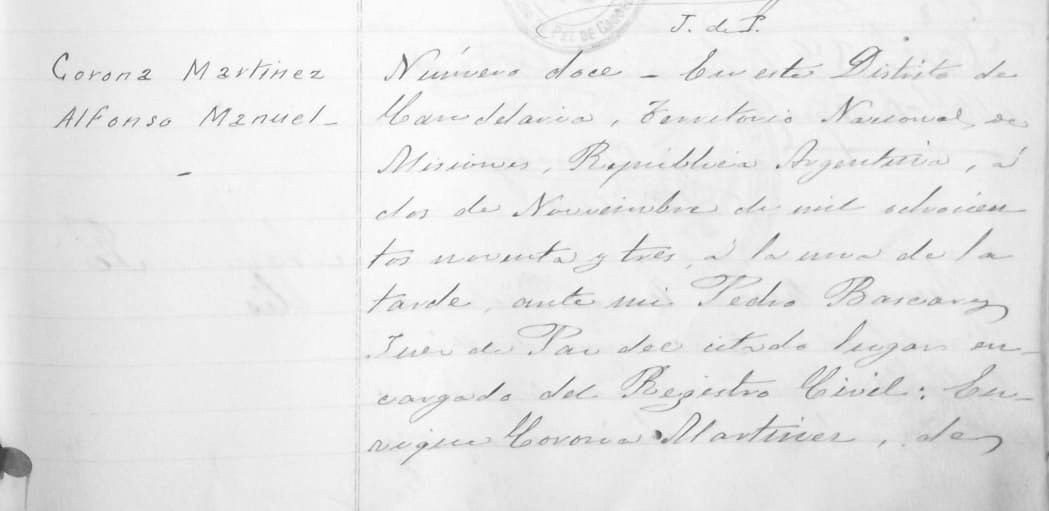 J. de P.
Corona Martinez
Alfonso Manuel -
Número doce - En este Distrito de
Candelaria, Territorio Nacional de
Misiones, República Argentina, á
dos de Noviembre de mil ochocien
tos noventa y tres, á la una de la
tarde, ante mi Pedro Bascary
Juez de Paz del citado lugar en-
cargado del Registro Civil: En-
rique Corona Martinez, de